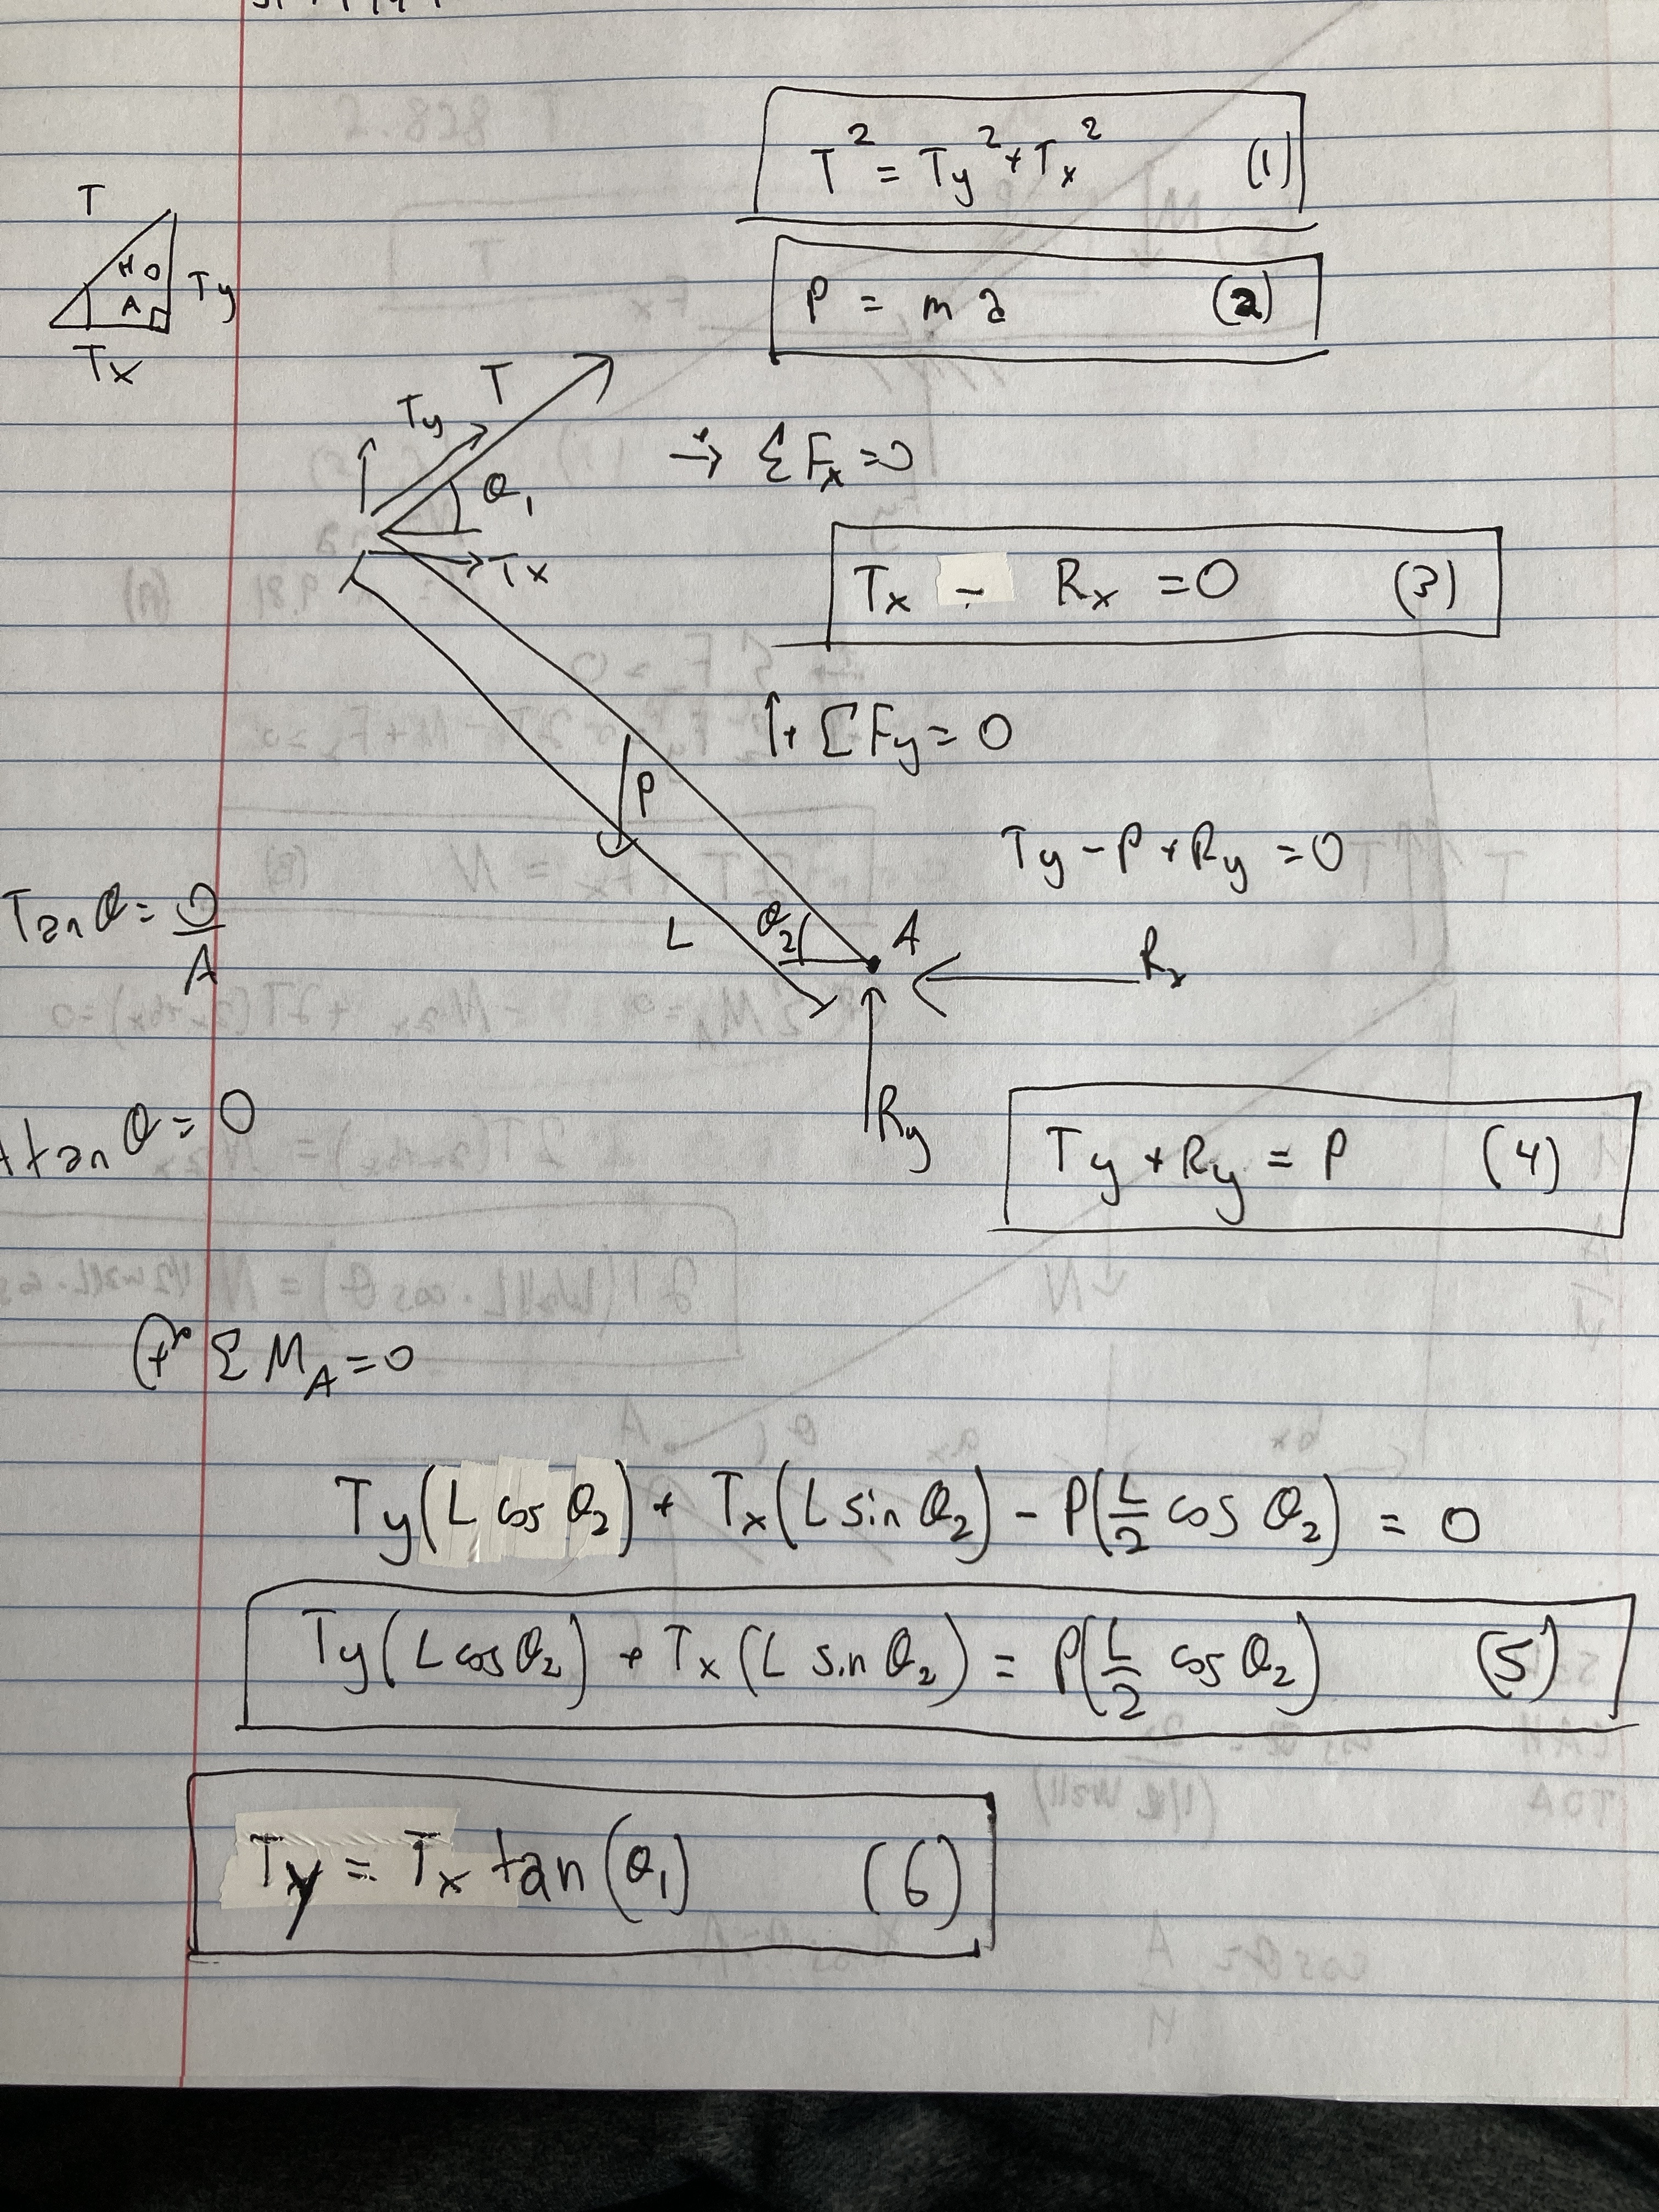 T² = Ty² + Tx² (1)
T
H O
A
Ty
Tx
P = m a (2)
T
Ty
θ₁
Tx
→⁺ ΣFx = 0
Tx - Rx = 0 (3)
↑+ ΣFy = 0
P
Ty - P + Ry = 0
Tan θ = O/A
L
θ₂
A
Rx
A tan θ = O
Ry
Ty + Ry = P (4)
ΣM_A = 0
Ty(L cos θ₂) + Tx(L sin θ₂) - P(L/2 cos θ₂) = 0
Ty(L cos θ₂) + Tx(L sin θ₂) = P(L/2 cos θ₂) (5)
Ty = Tx tan(θ₁) (6)